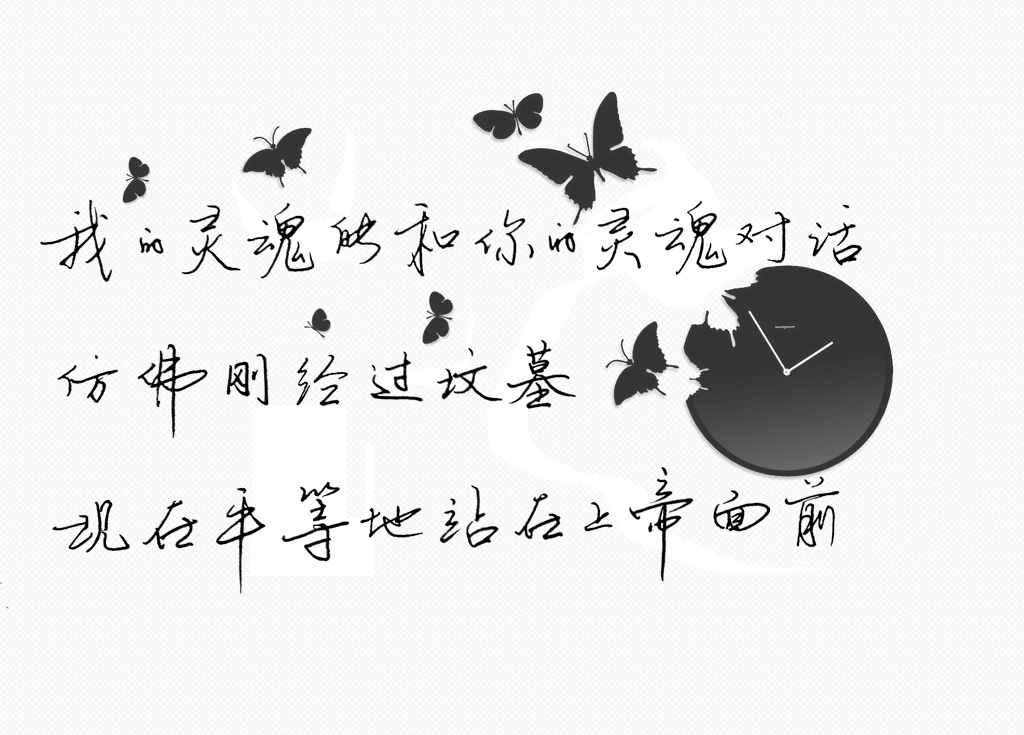 我的灵魂能和你的灵魂对话
仿佛刚经过坟墓
现在平等地站在上帝面前